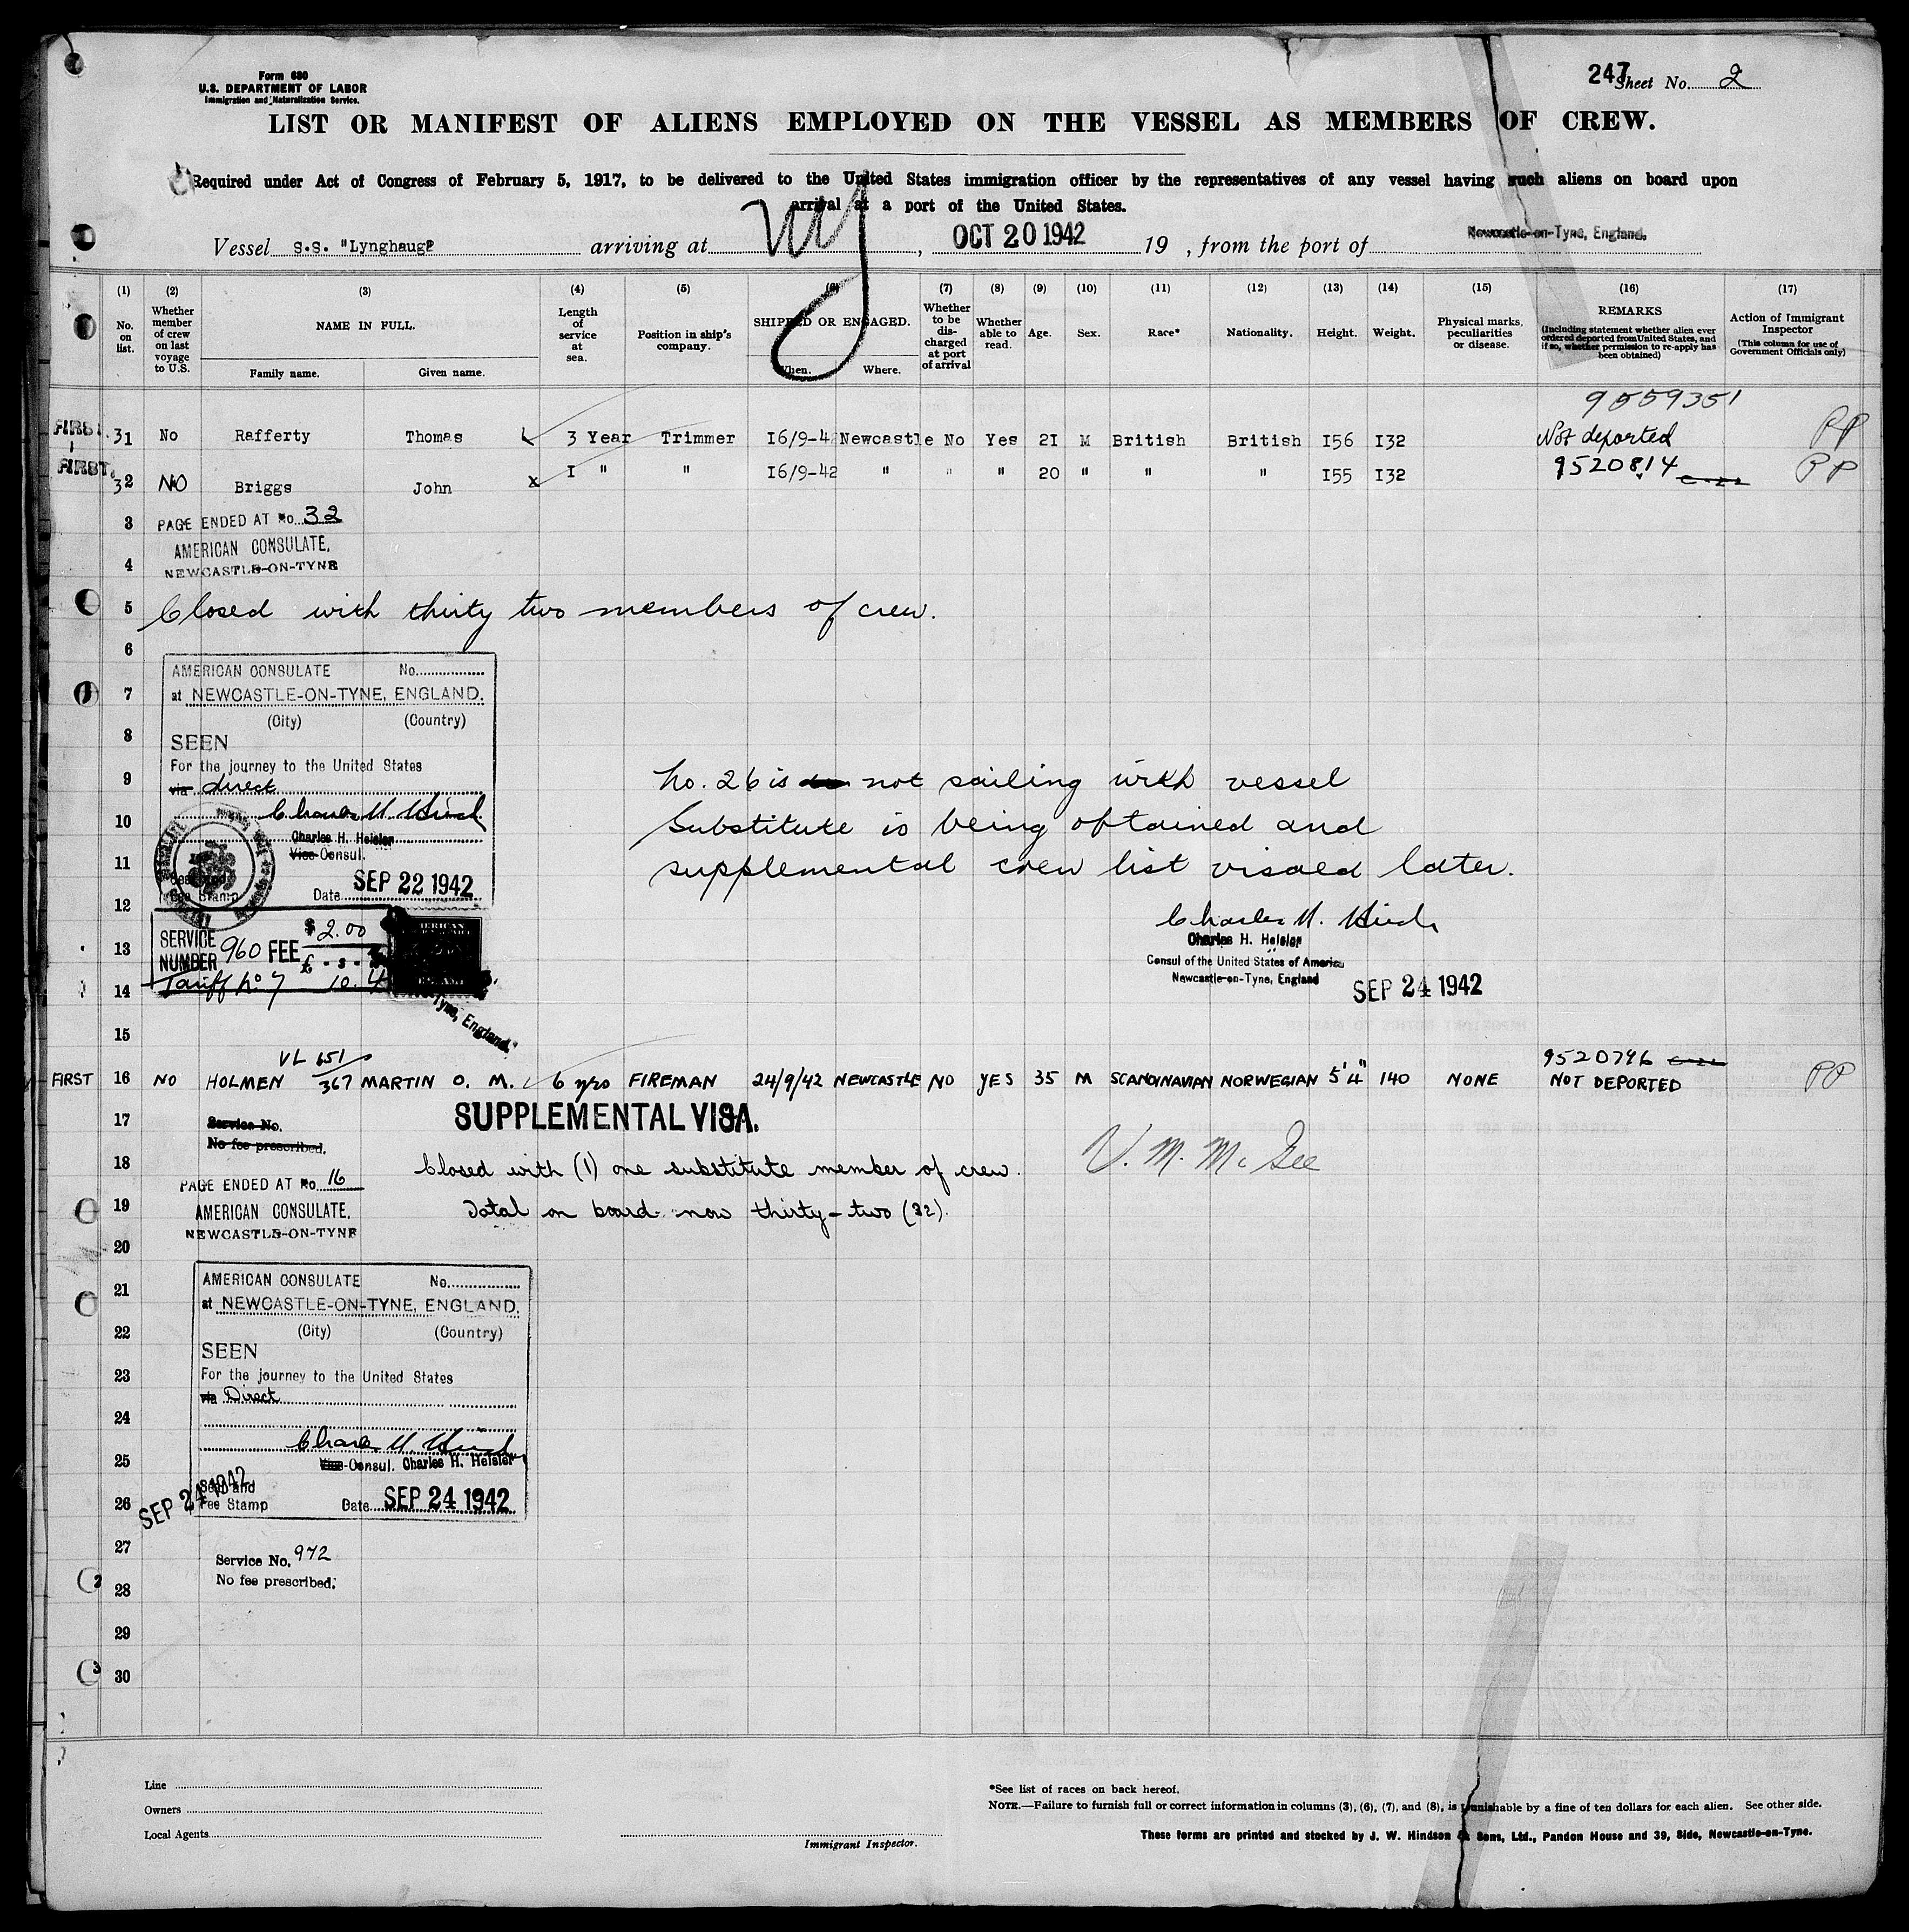 Form 680
U.S. DEPARTMENT OF LABOR
Immigration and Naturalization Service.
247
Sheet No. 2
LIST OR MANIFEST OF ALIENS EMPLOYED ON THE VESSEL AS MEMBERS OF CREW.
Required under Act of Congress of February 5, 1917, to be delivered to the United States immigration officer by the representatives of any vessel having such aliens on board upon
arrival at a port of the United States.
Vessel S.S. "Lynghaug" arriving at NY, OCT 20 1942 19 , from the port of Newcastle-on-Tyne, England.
(1) (2) (3) (4) (5) (6) (7) (8) (9) (10) (11) (12) (13) (14) (15) (16) (17)
No. on list.
Whether member of crew on last voyage to U.S.
NAME IN FULL.
Family name. Given name.
Length of service at sea.
Position in ship's company.
SHIPPED OR ENGAGED.
When. Where.
Whether to be discharged at port of arrival
Whether able to read.
Age.
Sex.
Race*
Nationality.
Height.
Weight.
Physical marks, peculiarities or disease.
REMARKS
(Including statement whether alien ever ordered deported from United States, and if so, whether permission to re-apply has been obtained)
Action of Immigrant Inspector
(This column for use of Government Officials only)
9559351
FIRST 31 No Rafferty Thomas 3 Year Trimmer I6/9-4 Newcastle No Yes 2I M British British I56 I32 Not deported PP
FIRST 32 NO Briggs John x I " " I6/9-42 " " " 20 " " " I55 I32 9520814 PP
3 PAGE ENDED AT No. 32
AMERICAN CONSULATE,
4 NEWCASTLE-ON-TYNE
5 Closed with thirty two members of crew.
6
AMERICAN CONSULATE No.
7 at NEWCASTLE-ON-TYNE, ENGLAND.
(City) (Country)
8 SEEN
For the journey to the United States
9 via direct
No. 26 is not sailing with vessel
10 Substitute is being obtained and
Charles H. Heisler
Vice-Consul.
11 supplemental crew list visaed later.
Seal and
Fee Stamp Date SEP 22 1942
12
Charles H. Heisler
Consul of the United States of America
Newcastle-on-Tyne, England
SEP 24 1942
13 SERVICE NUMBER 960 FEE $2.00
14 Tariff No 7 10.4
Tyne, England.
15
VL 651/
367
9520796
FIRST 16 NO HOLMEN MARTIN O. M. 6 yrs FIREMAN 24/9/42 NEWCASTLE NO YES 35 M SCANDINAVIAN NORWEGIAN 5'4" 140 NONE NOT DEPORTED PP
17 SUPPLEMENTAL VISA.
Service No.
No fee prescribed.
18 Closed with (1) one substitute member of crew.
V. M. McGee
PAGE ENDED AT No. 16
19 AMERICAN CONSULATE,
Total on board now thirty-two (32).
NEWCASTLE-ON-TYNE
20
AMERICAN CONSULATE No.
21 at NEWCASTLE-ON-TYNE, ENGLAND.
22 (City) (Country)
SEEN
23 For the journey to the United States
via Direct
24
25 Vice-Consul. Charles H. Heisler
SEP 24 1942
26 Seal and
Fee Stamp Date SEP 24 1942
27 Service No. 972
28 No fee prescribed.
29
30
Line
Owners
Local Agents
Immigrant Inspector.
*See list of races on back hereof.
NOTE.—Failure to furnish full or correct information in columns (3), (6), (7), and (8), is punishable by a fine of ten dollars for each alien. See other side.
These forms are printed and stocked by J. W. Hindson & Sons, Ltd., Pandon House and 39, Side, Newcastle-on-Tyne.